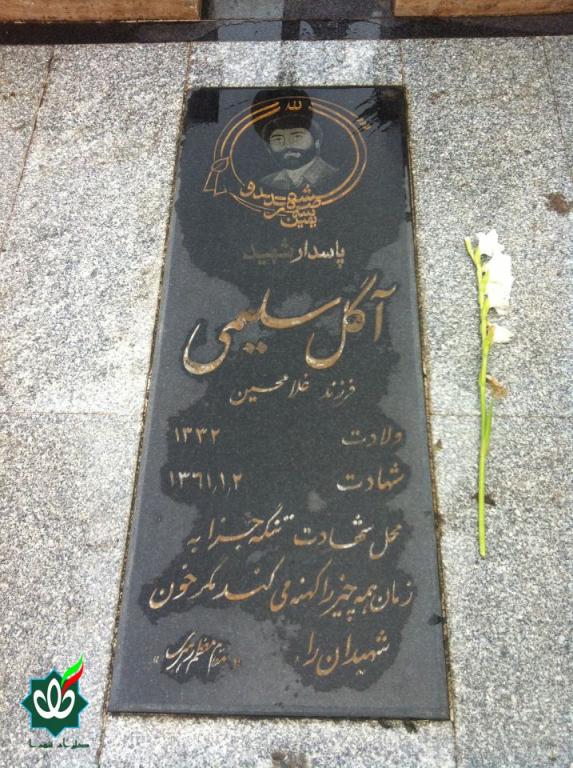 الله
شهید
پاسدار شهید
آگل سلیمی
فرزند غلامحسین
ولادت ۱۳۳۲
شهادت ۱۳۶۱٫۱٫۲
محل شهادت تنگه جزابه
زمان همه چیز را کهنه می کند مگر خون
شهیدان را «مقام معظم رهبری»